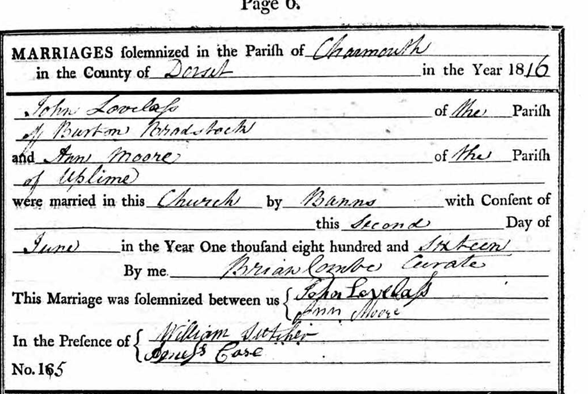 Page 6.
MARRIAGES solemnized in the Parish of Charmouth
in the County of Dorset in the Year 1816
John Lovelass of the Parish
of Burton Bradstock
and Ann Moore of the Parish
of Uplime
were married in this Church by Banns with Consent of
this Second Day of
June in the Year One thousand eight hundred and sixteen
By me Brian Combe Curate
This Marriage was solemnized between us { John Lovelass
Ann Moore
In the Presence of { William
Case
No. 165